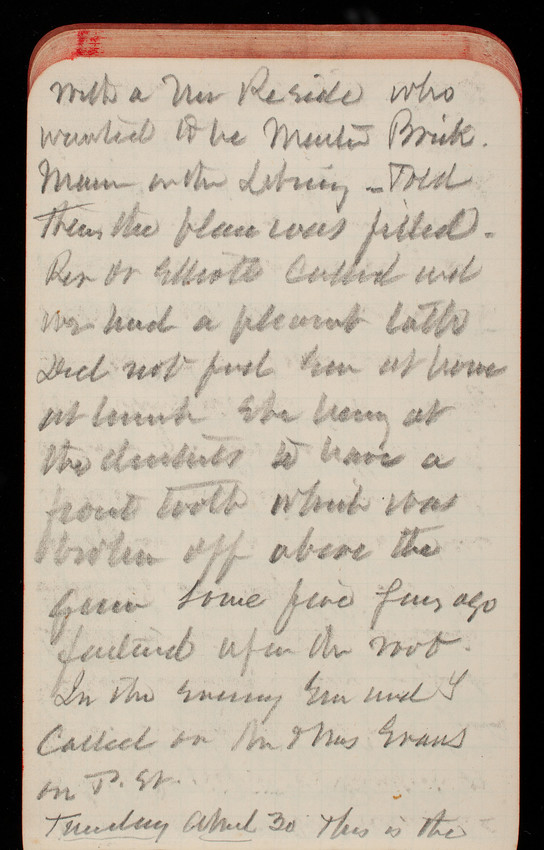 with a Mr Reside who
wanted to be Master Brick.
Mason on the Library - Told
them the place was filled -
Rev Dr Elliott Called and
we had a pleasant talk
Did not find Em at home
at lunch She being at
the dentists to have a
front tooth which was
broken off above the
gum some five years ago
fastened upon the root.
In the evening Em and I
Called on Mr & Mrs Evans
on P. St.
Tuesday April 30 This is the